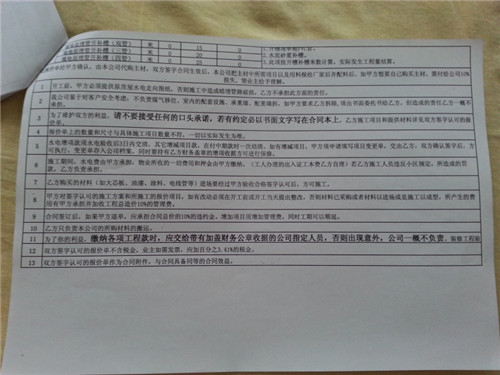 水电原墙管开补槽（双管） 米 0 15 0
水电原墙管开补槽（三管） 米 0 20 0 2.水泥砂浆补槽。
水电原墙管开补槽（四管） 米 0 25 0 3.此项按开槽补槽米数计算，实际发生工程量结算。
报价单的甲方确认，由本公司代购主材，双方签字合同生效后，本公司把主材中所有项目以及用料报给厂家后并配料后，如甲方想要自己购买主材，需付给公司10%
损失，望业主给予理解。
1 开工前，甲方必须提供原房屋水电走向图纸，否则施工中造成暗埋管路破损，乙方不承担此方面的责任。
2 我公司鉴于对客户安全考虑，不负责煤气移位，室内的配套设施，承重墙，配重墙拆，如甲方要求乙方拆除，须出书面委托书给乙方，但造成的责任乙方一概不
承担。
3 为了维护双方的利益，请不要接受任何的口头承诺，若有约定必以书面文字写在合同本上。施工项目以及提供材料详见双方签字认可的报
价单。
4 报价单上的数量和尺寸与具体施工项目数量不符，一切以实际发生为准。
5 水电增项款须水电验收后3日内交清，其它增减项目款，在付中期款时一次结清，如有增减项目，甲方须申请填写项目变更单，交由乙方，双方确认签字后，方
可执行。变更单存入公司档案。同时要持有乙方财务盖章的增项收据方可进行施工。
6 施工期间，水电费由甲方承担，物业所收的一切费用和押金由甲方缴纳。（工人办理的出入证工本费乙方自理）若乙方施工人员违反小区规定，所造成的罚
款，乙方负责承担。
7 乙方购买的材料（如大芯板，油漆，涂料，电线管等）进场要经过甲方验收合格签字认可后，方可施工。
8 甲方对签字认可的施工方案和所施工的报价项目，如有改动必须在开工前或开工当天提出整改，否则材料已采购或者材料以进场或是施工以成型，所产生的费
用有甲方承担并加收工程总造价10%的管理费。
9 合同签订后，如果甲方退单，应承担合同总价的10%的违约金，增加项目用增加管理费，同时工期可以顺延。
10 乙方只负责本公司的所购材料的搬运。
11 为了你的利益，缴纳各项工程款时，应交给带有加盖财务公章收据的公司指定人员，否则出现意外，公司一概不负责。装修工程验
12 双方签字认可的报价单不含税金。业主如需发票，应加百分之3.41%的税金。
13 双方签字认可的报价单作为合同附件，与合同具备同等的合同效益。